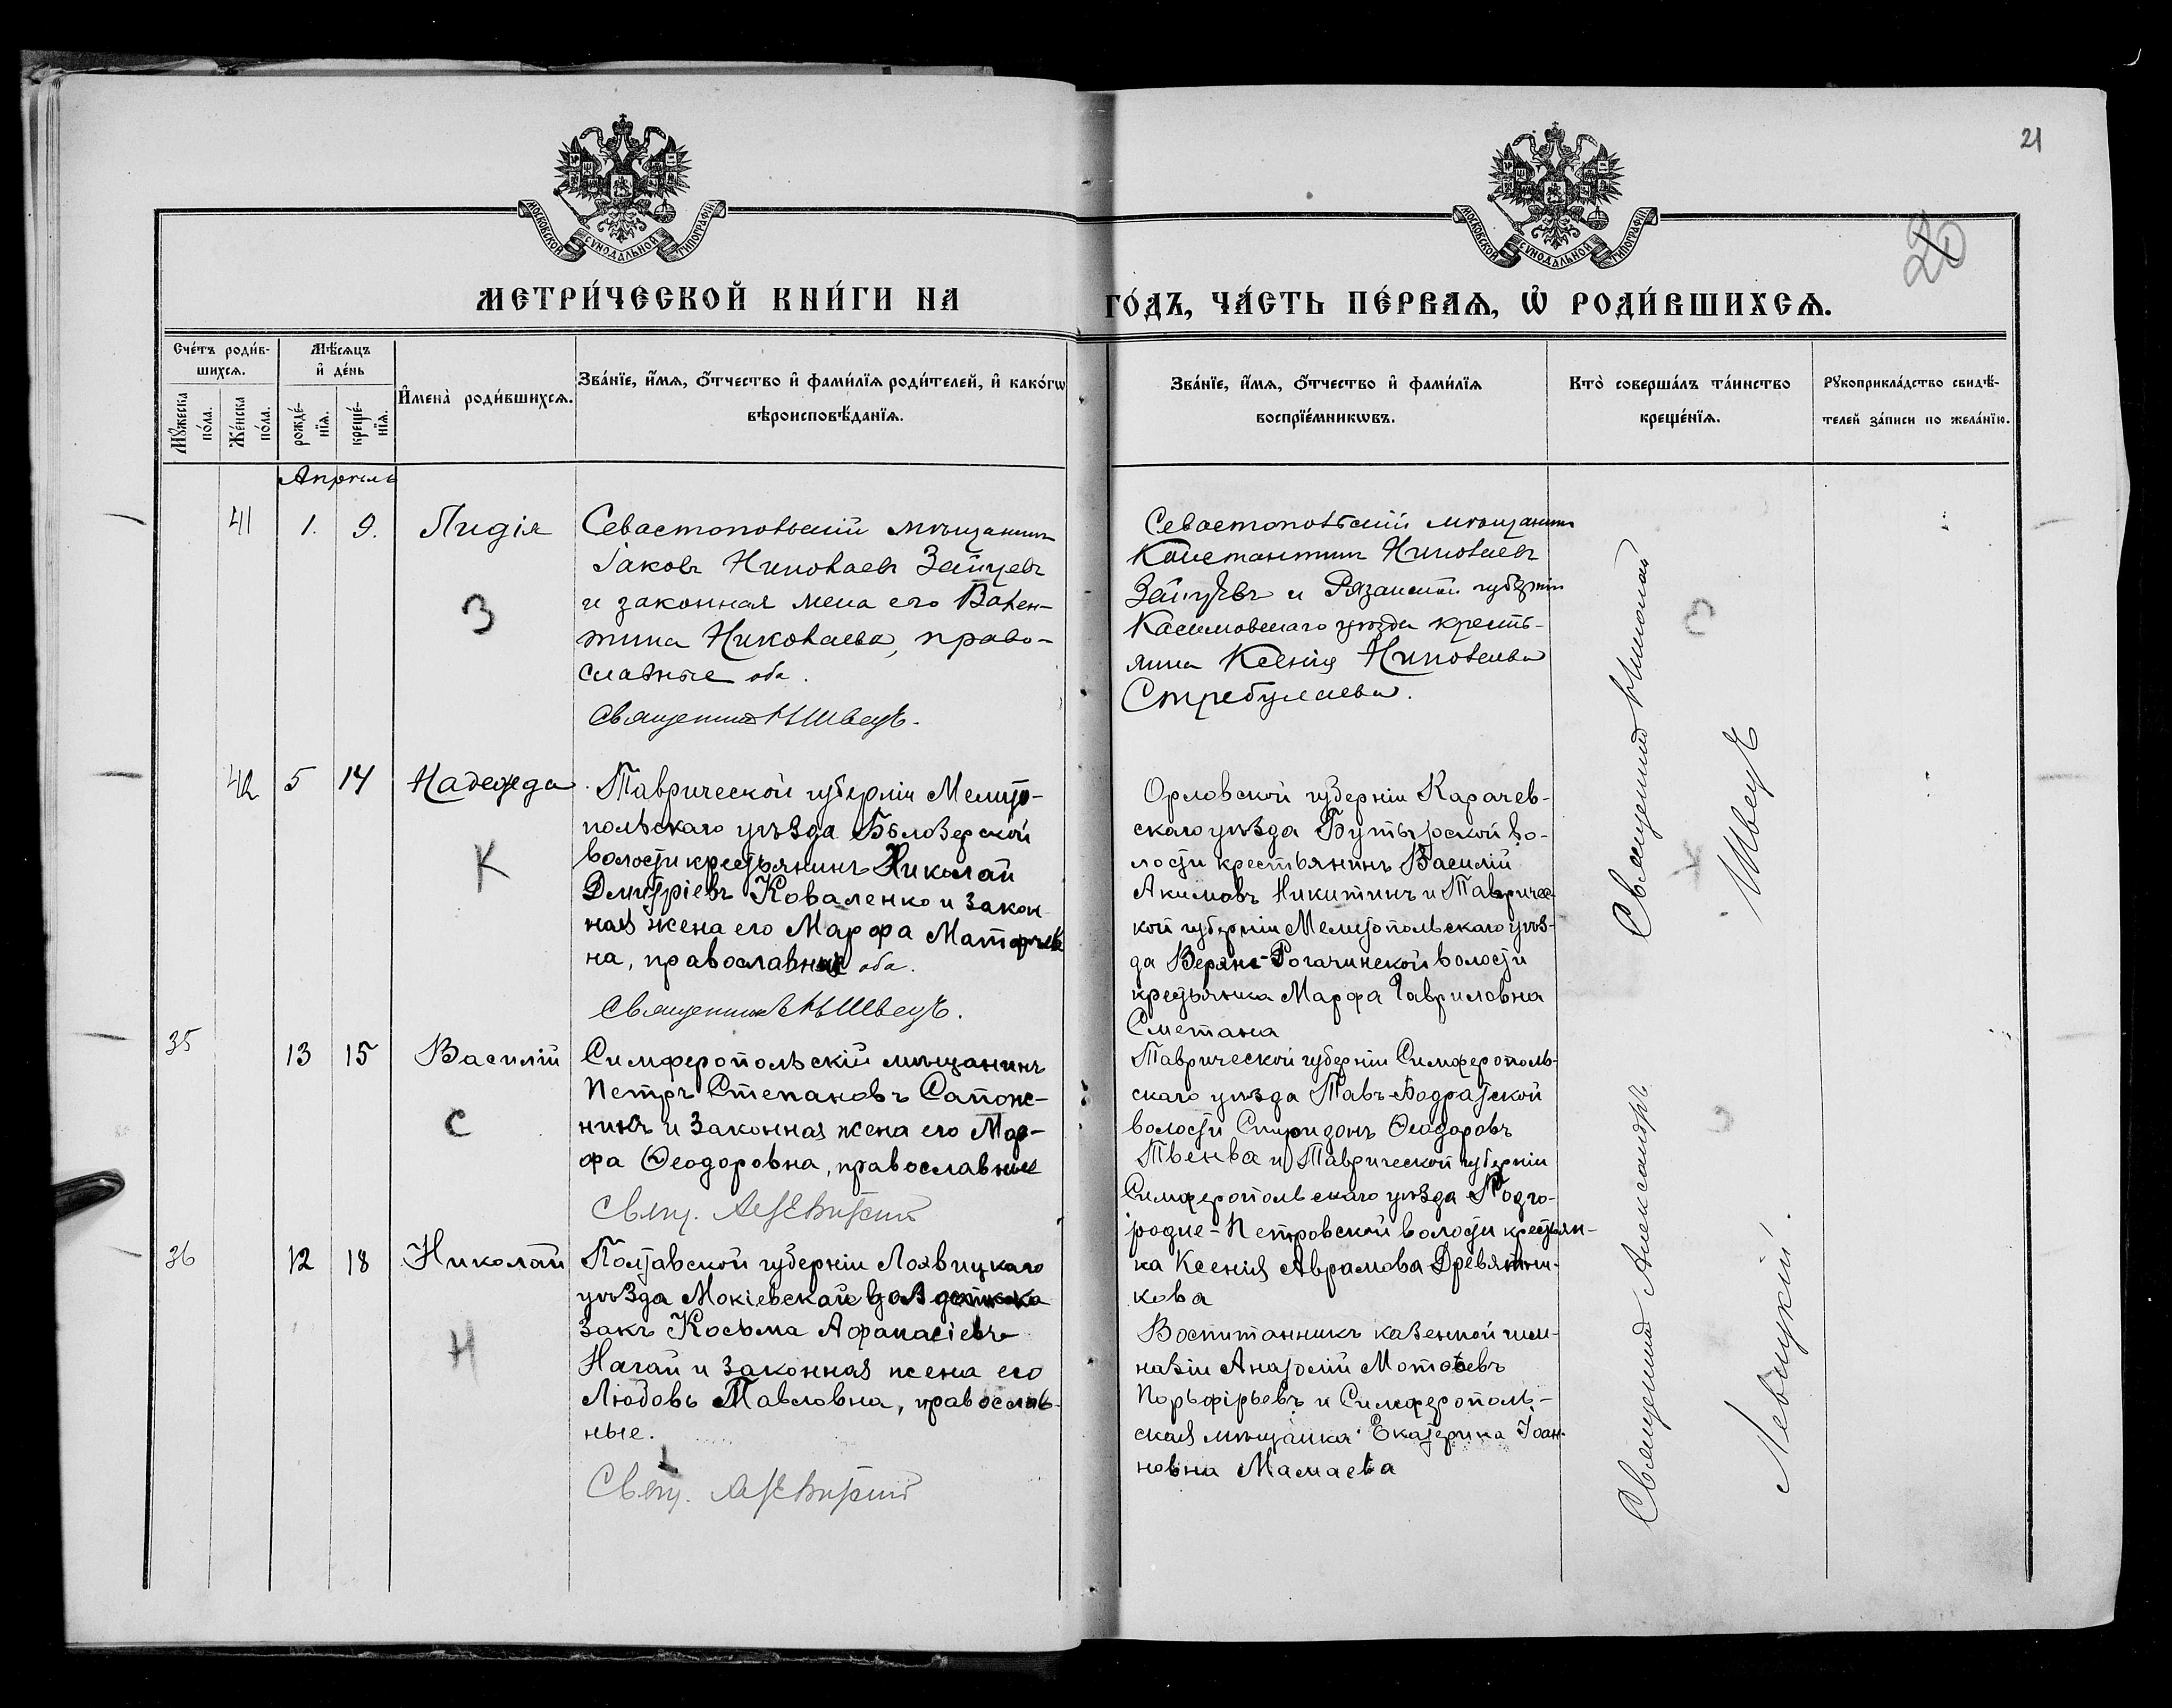 21
20
МОСКОВСКОЙ СѴНОДАЛЬНОЙ ТИПОГРАФІИ
МОСКОВСКОЙ СѴНОДАЛЬНОЙ ТИПОГРАФІИ
МЕТРИ́ЧЕСКОЙ КНИ́ГИ НА
ГО́ДЪ, ЧА́СТЬ ПЕ́РВАѦ, Ѡ҆ РОДИ́ВШИХСѦ.
Сче́тъ роди́в-
шихсѧ.
Мꙋ́жеска по́ла.
Же́нска по́ла.
Мѣ́сѧцъ
и҆ де́нь
рожде́-
нїѧ.
креще́-
нїѧ.
И҆мена̀ роди́вшихсѧ.
Зва́нїе, и҆́мѧ, ѻ҆́тчество и҆ фами́лїѧ роди́телей, и҆ како́гѡ
вѣроисповѣ́данїѧ.
Зва́нїе, и҆́мѧ, ѻ҆́тчество и҆ фами́лїѧ
воспрїе́мникѡвъ.
Кто̀ соверша́лъ та́инство
креще́нїѧ.
Рꙋкоприкла́дство свидѣ́-
телей за́писи по жела́нїю.
Апрель
41 1. 9. Лидія
З
Севастопольскій мѣщанинъ
Іаковъ Николаевъ Зайцевъ
и законная жена его Вален-
тина Николаева, право-
славные оба.
Священникъ Н Швецъ.
Севастопольскій мѣщанинъ
Константинъ Николаевъ
Зайцевъ и Рязанской губерніи
Касимовскаго уѣзда кресть-
янка Ксенія Николаева
Стребулаева.
42 5 14 Надежда
К
Таврической губерніи Мелито-
польскаго уѣзда Бѣлозерской
волости крестьянинъ Николай
Дмитріевъ Коваленко и закон-
ная жена его Марфа Матфѣев
на, православные оба.
Священникъ Н Швецъ.
Орловской губерніи Карачев-
скаго уѣзда Бутырской во-
лости крестьянинъ Василій
Акимовъ Никитинъ и Тавричес-
кой губерніи Мелитопольскаго уѣз-
да Верхне-Рогачинской волости
крестьянка Марфа Гавриловна
Сметана
Священникъ Николай
Швецъ
35 13 15 Василій
С
Симферопольскій мѣщанинъ
Петръ Степановъ Сапож-
никъ и законная жена его Мар-
фа Ѳеодоровна, православные
Свящ. А Левитскій
Таврической губерніи Симферополь-
скаго уѣзда Тавъ-Бадратской
волости Спиридонъ Ѳеодоровъ
и Таврической губерніи
Симферопольскаго уѣзда Подго-
родне-Петровской волости крестьян-
ка Ксенія Аврамова Древятни-
кова
36 12 18 Николай
Н
Полтавской губерніи Лохвицкаго
уѣзда Мокіевской
закъ Косьма Афанасіевъ
Нагай и законная жена его
Любовь Павловна, православ-
ные.
Свящ. А Левитскій
Воспитанникъ казенной гим-
назіи Анатолій
Порьфірьевъ и Симферополь-
ская мѣщанка Екатерина Іоан-
новна Мамаева
Священникъ Александръ
Левицкій.